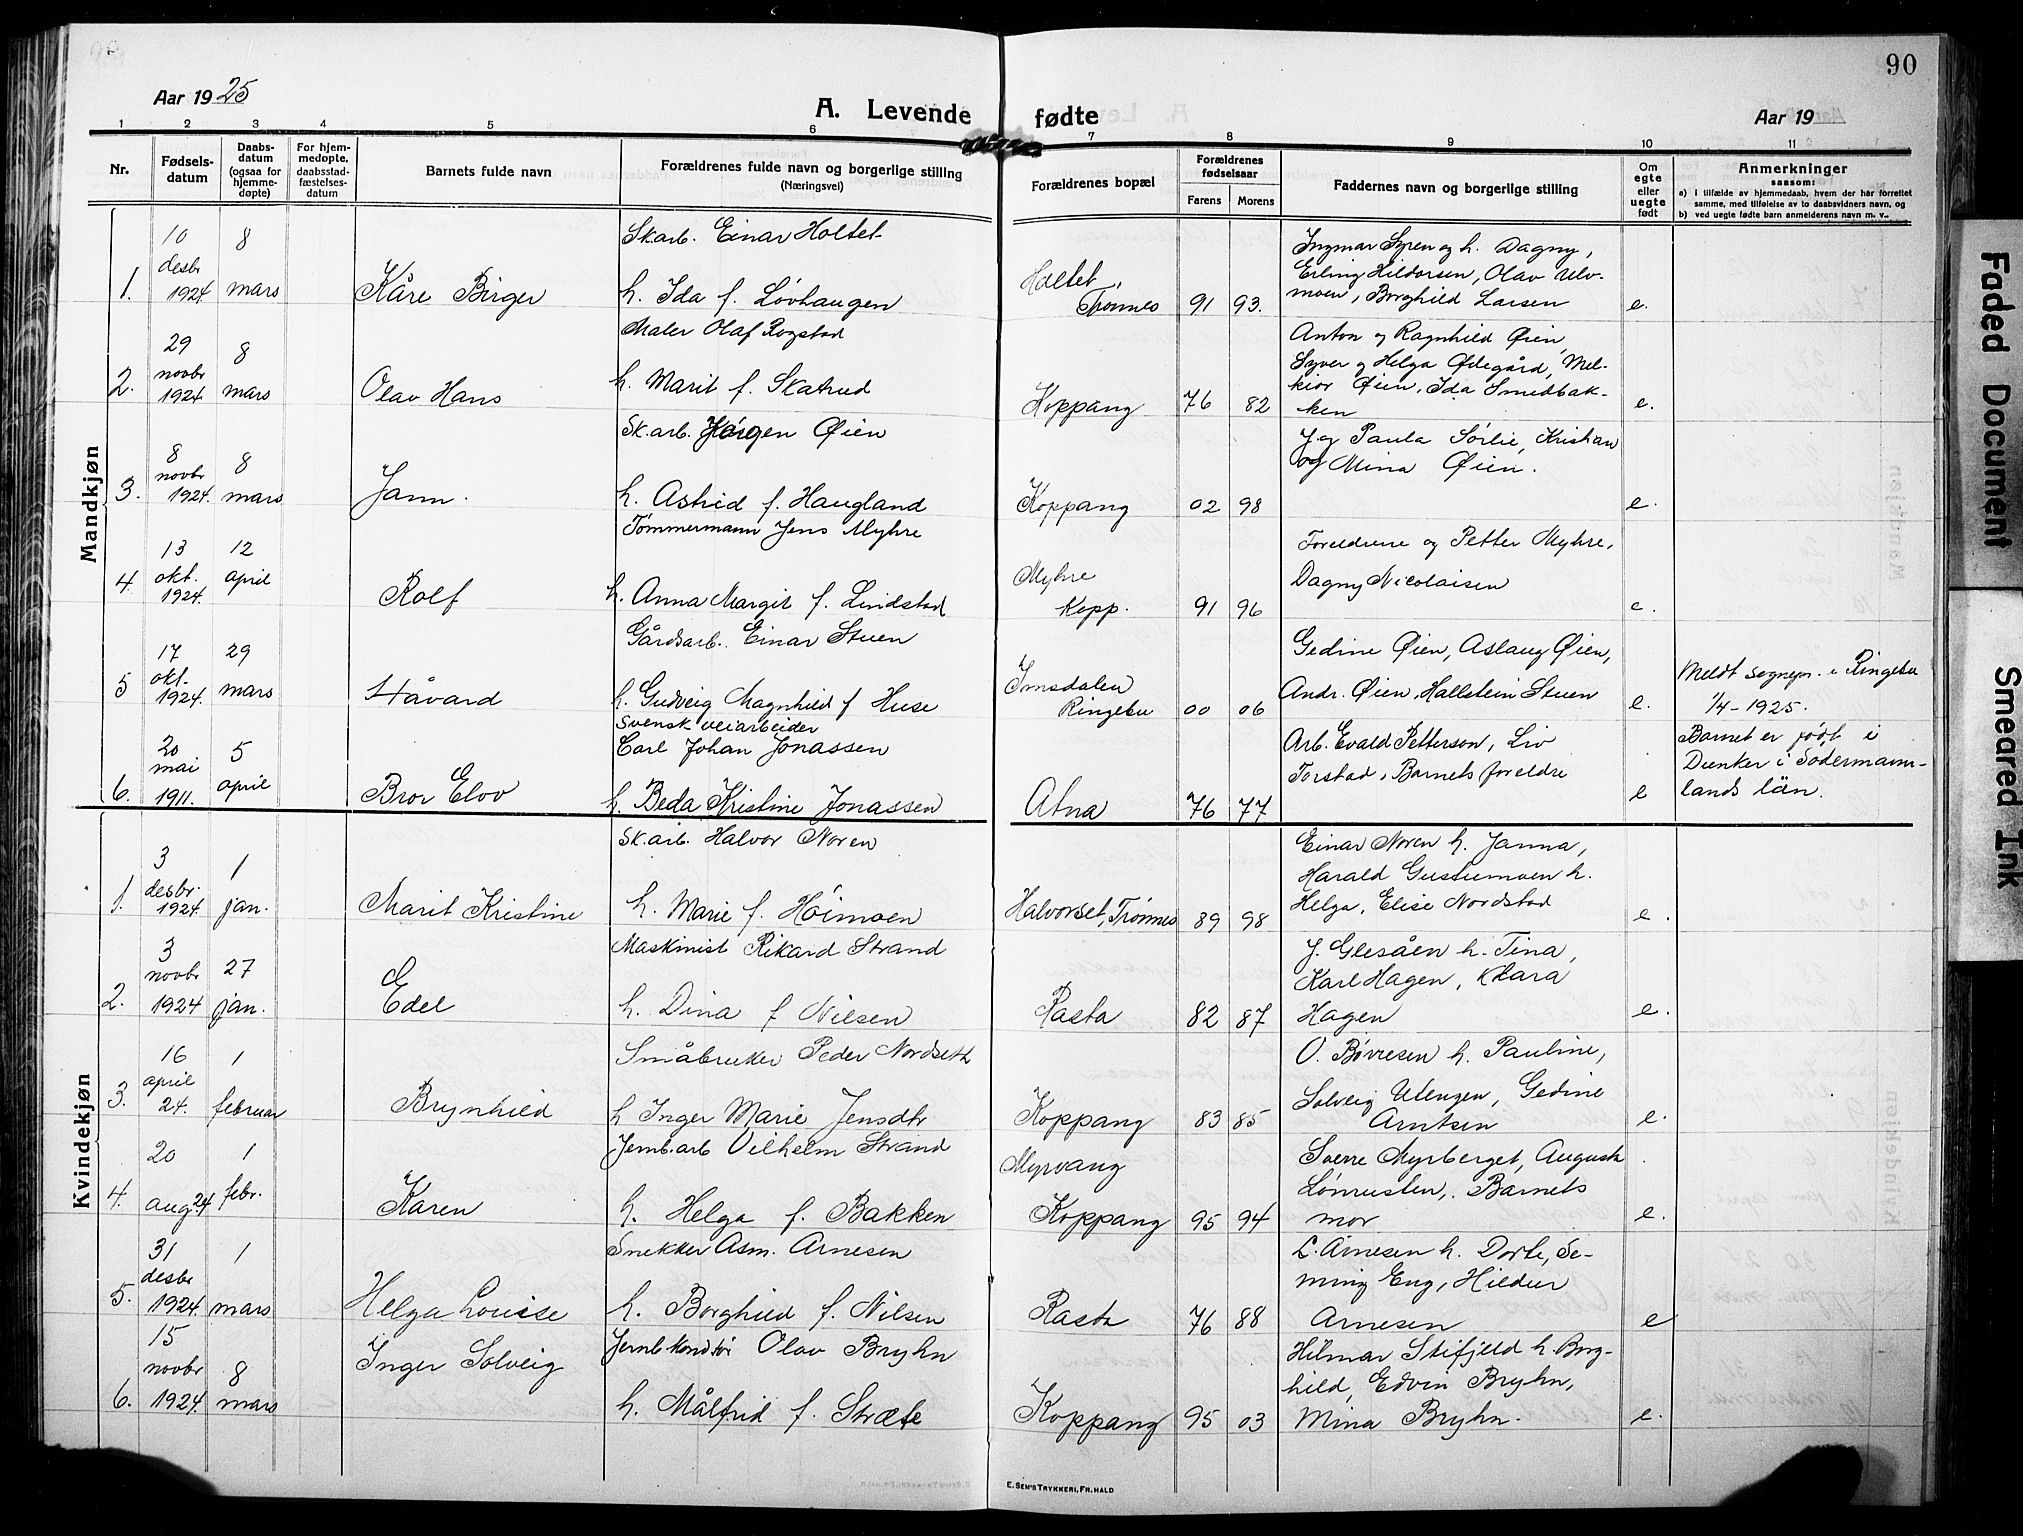 90
Aar 1925
A. Levende fødte
Aar 19
1 2 3 4 5 6 7 8 9 10 11
Nr.
Fødsels-
datum
Daabs-
datum
(ogsaa for
hjemme-
døpte)
For hjem-
medøpte,
daabsstad-
fæstelses-
datum
Barnets fulde navn
Forældrenes fulde navn og borgerlige stilling
(Næringsvei)
Forældrenes bopæl
Forældrenes
fødselsaar
Farens Morens
Faddernes navn og borgerlige stilling
Om
egte
eller
uegte
født
Anmerkninger
saasom:
a) i tilfælde av hjemmedaab, hvem der har forrettet
samme, med tilføielse av to daabsvidners navn, og
b) ved uegte fødte barn anmelderens navn m. v..
Mandkjøn
1. 10 desbr 1924 8 mars Kåre Birger
Sk.arb. Einar Holtet
h. Ida f. Løvhaugen
Holtet,
Trønnes 91 93.
Ingmar Syren og h. Dagny,
Erling Hildorsen, Olav Ulv-
moen, Borghild Larsen e.
2. 29 novbr 1924 8 mars Olav Hans
Maler Olaf Rogstad
h. Marit f. Skatrud
Koppang 76 82
Anton og Ragnhild Øien
Syver og Helga Ødegård, Mel-
kior Øien, Ida Smedbak-
ken e.
3. 8 novbr 1924. 8 mars Jann.
Sk.arb. Jørgen Øien
h. Astrid f. Haugland
Koppang 02 98
J. og Paula Sørlie, Kristian
og Mina Øien. e.
4. 13 okt. 1924. 12 april Rolf
Tømmermann Jens Myhre
h. Anna Margit f. Lindstad
Myhre
Kopp. 91 96
Foreldrene og Petter Myhre,
Dagny Nicolaisen e.
5 17 okt. 1924. 29 mars Håvard
Gårdsarb. Einar Stuen
h. Gudveig Magnhild f Huse
Imsdalen
Ringebu 00 06
Gedine Øien, Aslaug Øien,
Andr. Øien, Hallstein Stuen e.
Meldt sognepr. i Ringebu
1/4-1925.
6. 20 mai 1911. 5 april Bror Elov
Svensk veiarbeider
Carl Johan Jonassen
h. Beda Kristine Jonassen
Atna 76 77
Arb. Evald Petterson, Liv
Torstad, Barnets foreldre e
Barnet er født i
Dunker i Södermann-
lands län.
Kvindekjøn
1. 3 desbr. 1924. 1 jan. Marit Kristine
Sk.arb. Halvor Noren
h. Marie f. Høimoen
Halvorset, Trønnes 89 98
Einar Noren h. Janna,
Harald Gustumoen h.
Helga, Elise Nordstad e.
2. 3 novbr 1924 27 jan. Edel
Maskinist Rikard Strand
h. Dina f Nilsen
Rasta 82 87
J. Glesåen h. Tina,
Karl Hagen, Klara
Hagen e.
3. 16 april 24. 1 februar Brynhild
Småbruker Peder Nordseth
h Inger Marie Jensdtr
Koppang 83 85
O. Bøvresen h. Pauline,
Solveig Ulengen, Gedine
Arntsen e.
4. 20 aug. 24 1 febr. Karen
Jernb.arb Vilhelm Strand
h. Helga f. Bakken
Myrvang
Koppang 95 94
Sverre Myrberget, Augusta
Lønrusten, Barnets
mor e.
5. 31 desbr 1924. 1 mars Helga Louise
Snekker Asm. Arnesen
h. Borghild f. Nilsen
Rasta 76 88
L. Arnesen h. Dorte, Se-
ming Eng, Hildur
Arnesen e
6. 15 novbr 1924. 8 mars Inger Solveig
Jernb.kondtør Olav Bryhn
h. Målfrid f. Stræte
Koppang 95 03
Hilmar Stifjeld h. Borg-
hild, Edvin Bryhn,
Mina Bryhn. e.
E. SEM'S TRYKKERI, FR.HALD
Faded Document
Smeared Ink